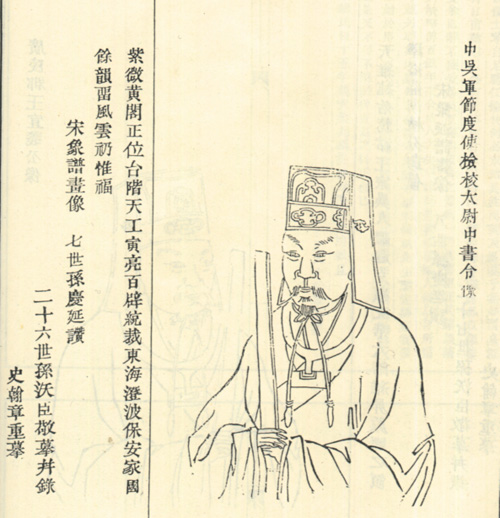 中吳軍節度使檢校太尉中書令像
紫微黃閣正位台階天工寅亮百辟統裁東海澄波保安家國
餘韻畱風雲礽惟福
宋象譜畫像　七世孫慶延讚
二十六世孫沃臣敬摹幷錄
史翰章重摹